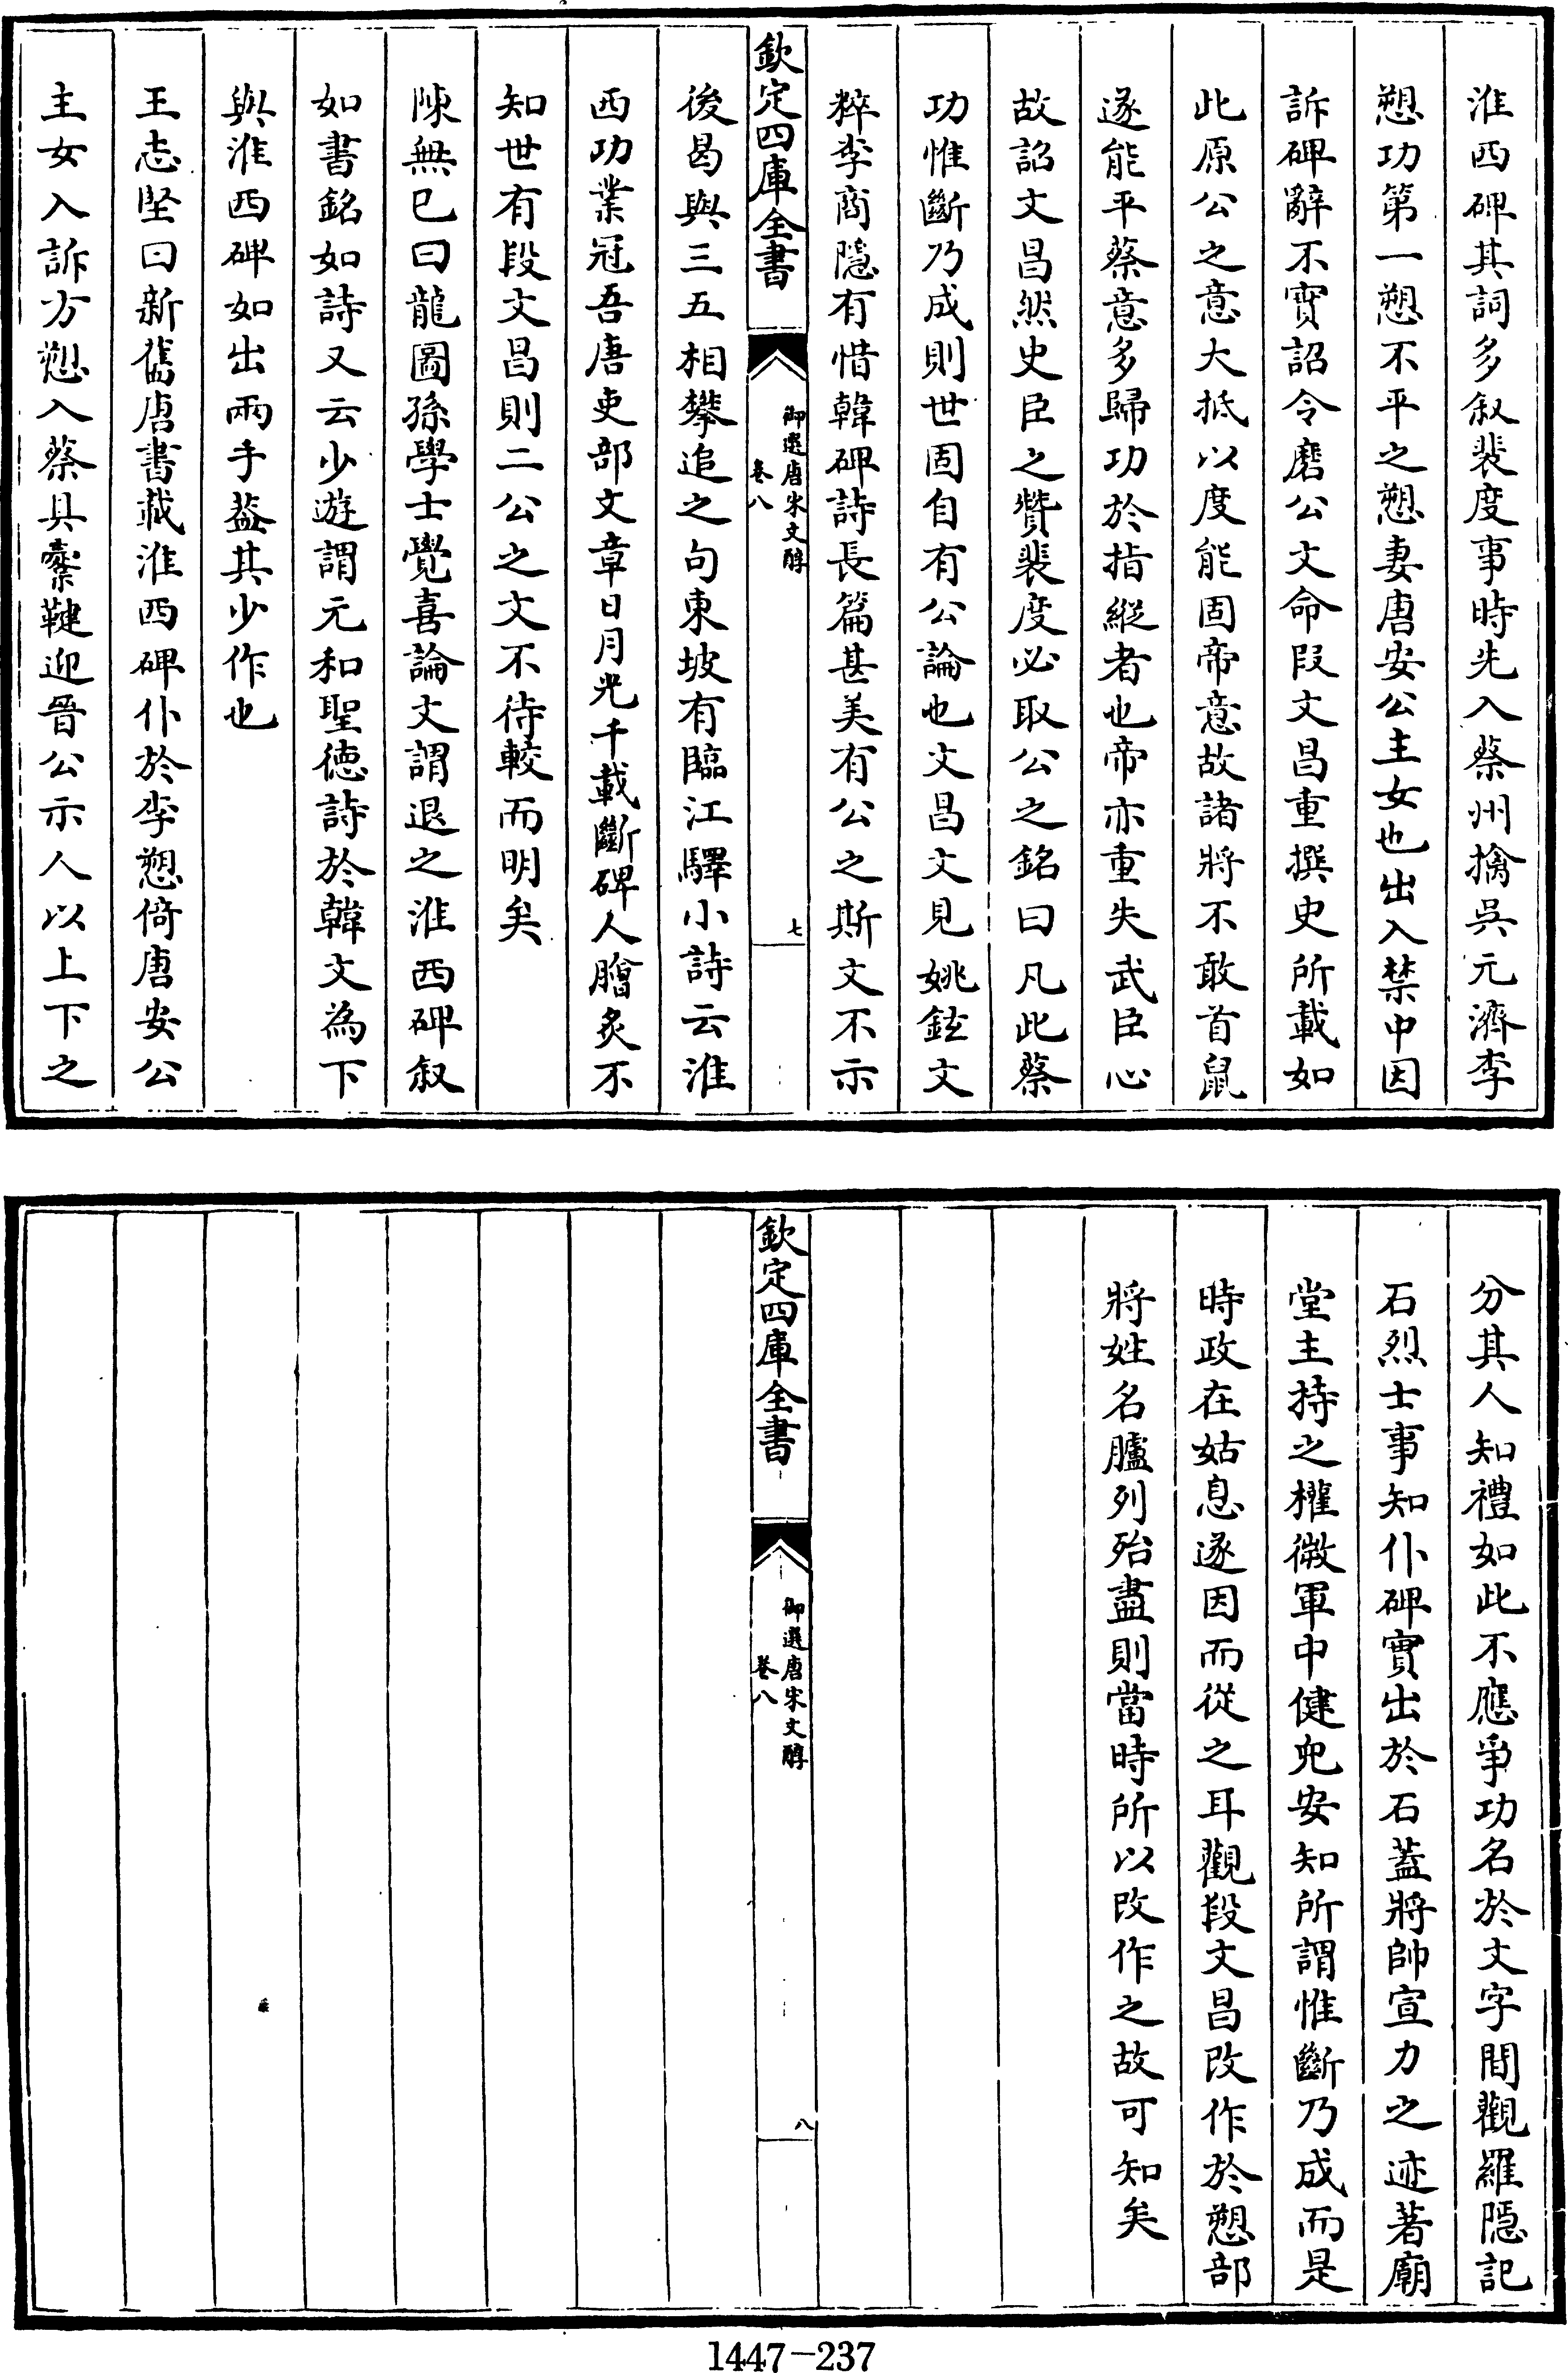 淮西碑其詞多叙裴度事時先入蔡州擒吳元濟李
愬功第一愬不平之愬妻唐安公主女也出入禁中因
訴碑辭不實詔令磨公文命段文昌重撰史所載如
此原公之意大抵以度能固帝意故諸將不敢首鼠
遂能平蔡意多歸功於指縱者也帝亦重失武臣心
故詔文昌然史臣之贊裴度必取公之銘曰凡此蔡
功惟斷乃成則世固自有公論也文昌文見姚鉉文
粹李商隱有惜韓碑詩長篇甚美有公之斯文不示
欽定四庫全書
御選唐宋文醇
卷八
七
後曷與三五相攀追之句東坡有臨江驛小詩云淮
西功業冠吾唐吏部文章日月光千載斷碑人膾炙不
知世有段文昌則二公之文不待較而明矣
陳無已曰龍圖孫學士覺喜論文謂退之淮西碑叙
如書銘如詩又云少遊謂元和聖徳詩於韓文為下
與淮西碑如出兩手葢其少作也
王志堅曰新舊唐書載淮西碑仆於李愬倚唐安公
主女入訴方愬入蔡具櫜鞬迎晉公示人以上下之
分其人知禮如此不應爭功名於文字間觀羅隱記
石烈士事知仆碑實出於石蓋將帥宣力之迹著廟
堂主持之權微軍中健兒安知所謂惟斷乃成而是
時政在姑息遂因而從之耳觀段文昌改作於愬部
將姓名臚列殆盡則當時所以改作之故可知矣
欽定四庫全書
御選唐宋文醇
卷八
八
1447-237